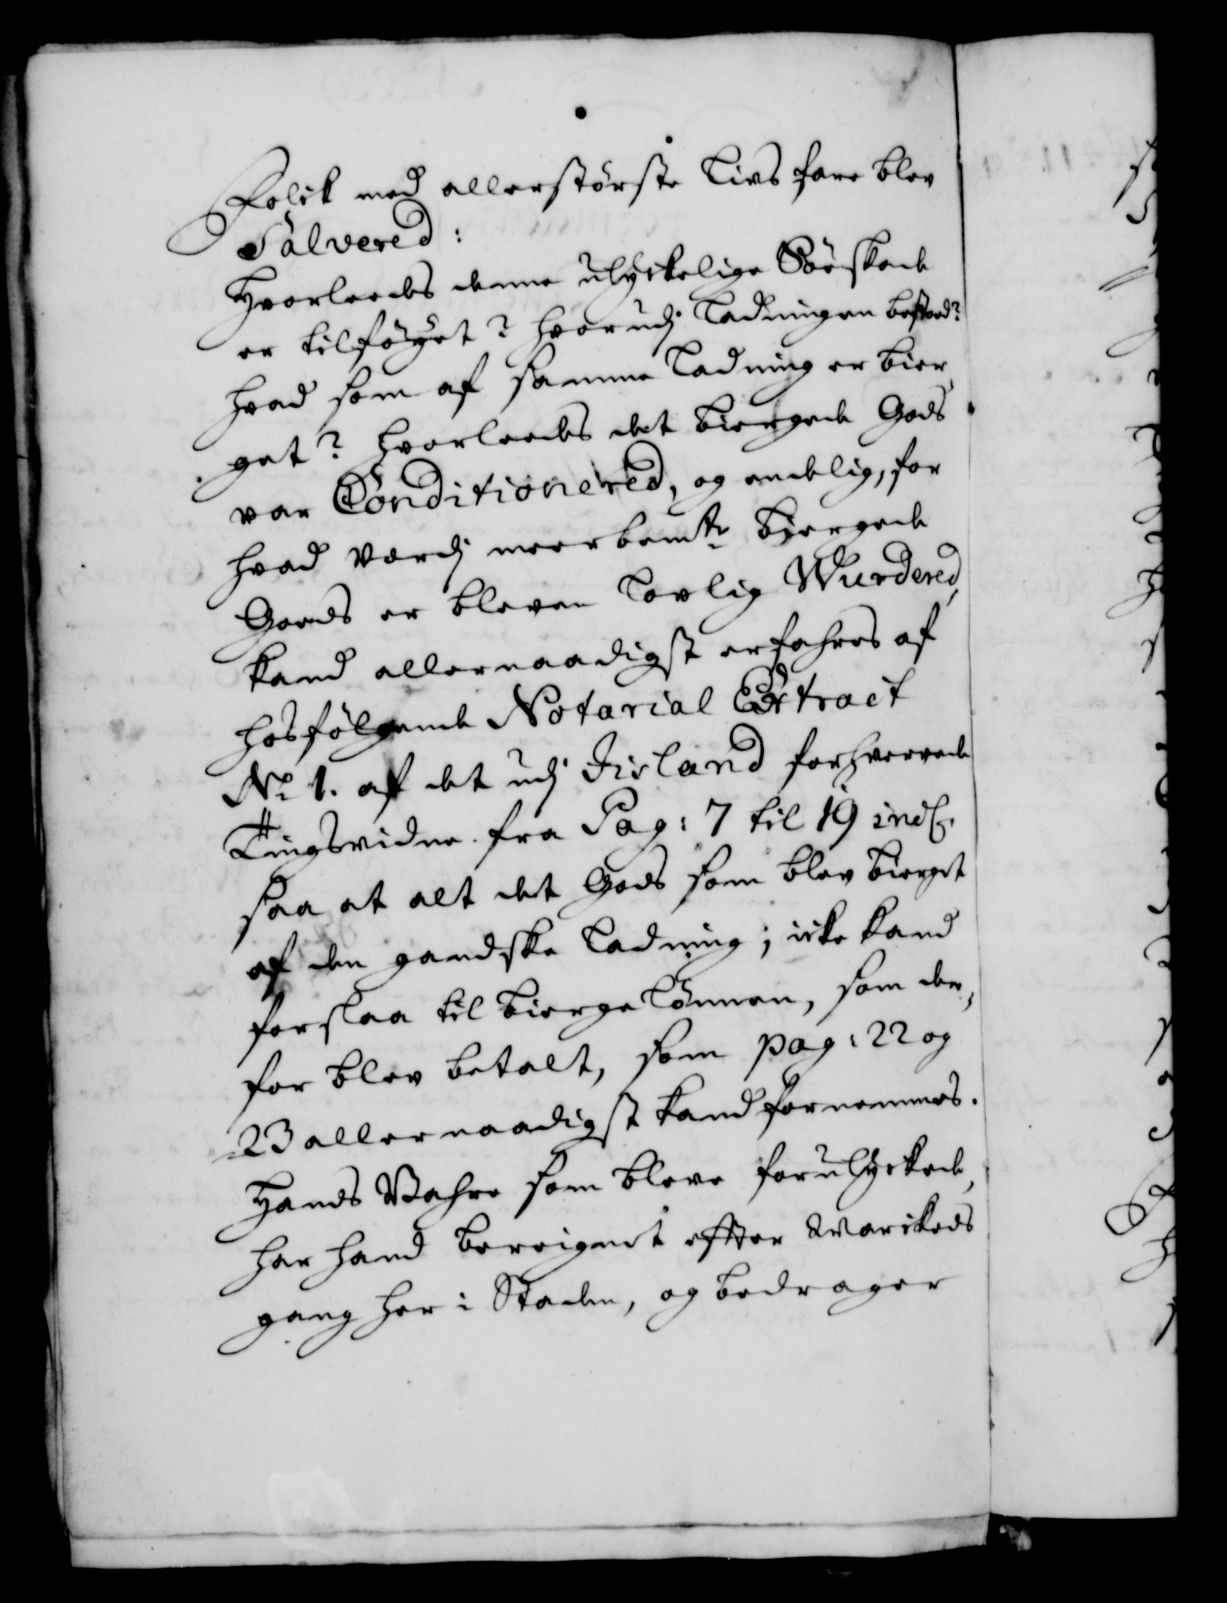 Folck med allerstörste Livs fare blev
Salvered:
Hvorleedes denne ulyckelige Söeskade
er tilföyet? hvorudj Ladningen bestoed?
hvad som af samme Ladning er bier,
get? hvorleedes det biergede Gods
var Conditionered, og endelig, for
hvad værdj meerbemte biergede
Goeds er bleven Lovlig Wurdered,
kand allernaadigst erfahres af
hosfölgende Notarial Extract
No 1. af det udj Jisland forhvervede
Tingsvidne fra Pag: 7 til 19 incl.
saa at alt det Gods som blev bierget
af den gandske Ladning; icke kand
forslaa til bierge Lönnen, som der,
for blev betalt, som pag: 22 og
23 allernaadigst kand fornemmes.
Hands Vahre som bleve forulyckede,
har hand beregnet effter Marckeds
gang her i Staden, og bedrager